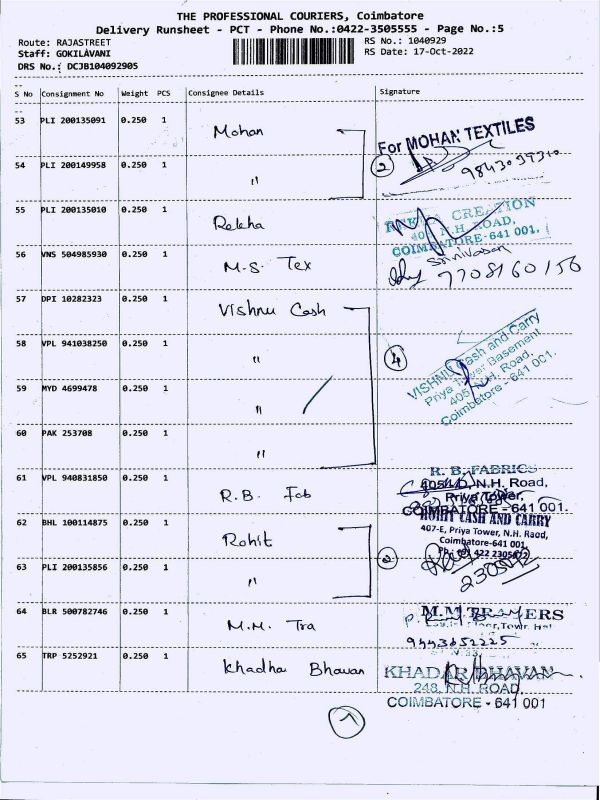 THE PROFESSIONAL COURIERS, Coimbatore
Delivery Runsheet - PCT - Phone No.:0422-3505555 - Page No.:5
Route: RAJASTREET RS No.: 1040929
Staff: GOKILAVANI RS Date: 17-Oct-2022
DRS No.: DCJB104092905
S No Consignment No Weight PCS Consignee Details Signature
53 PLI 200135091 0.250 1 Mohan
For MOHAN TEXTILES
54 PLI 200149958 0.250 1 " 2
55 PLI 200135010 0.250 1 Rekha
CREATION
N.H. ROAD,
COIMBATORE-641 001.
56 VNS 504985930 0.250 1 M.S. Tex
Srinivasan
7708160156
57 DPI 10282323 0.250 1 Vishnu Cash
58 VPL 941038250 0.250 1 " 4
VISHNU Cash and Carry
Priya Tower Basement
405, N.H. Road,
Coimbatore - 641 001.
59 MYD 4699478 0.250 1 "
60 PAK 253708 0.250 1 "
61 VPL 940831850 0.250 1 R.B. Fab
R. B. FABRICS
405/LD, N.H. Road,
Priya Tower,
COIMBATORE - 641 001.
62 BHL 100114875 0.250 1 Rohit
ROHIT CASH AND CARRY
407-E, Priya Tower, N.H. Raod,
Coimbatore-641 001.
63 PLI 200135856 0.250 1 " 2
64 BLR 500782746 0.250 1 M.M. Tra
M.M TRAYERS
9443652225
65 TRP 5252921 0.250 1 Khadha Bhavan
KHADAR BHAVAN
248, N.H. ROAD,
COIMBATORE - 641 001
1